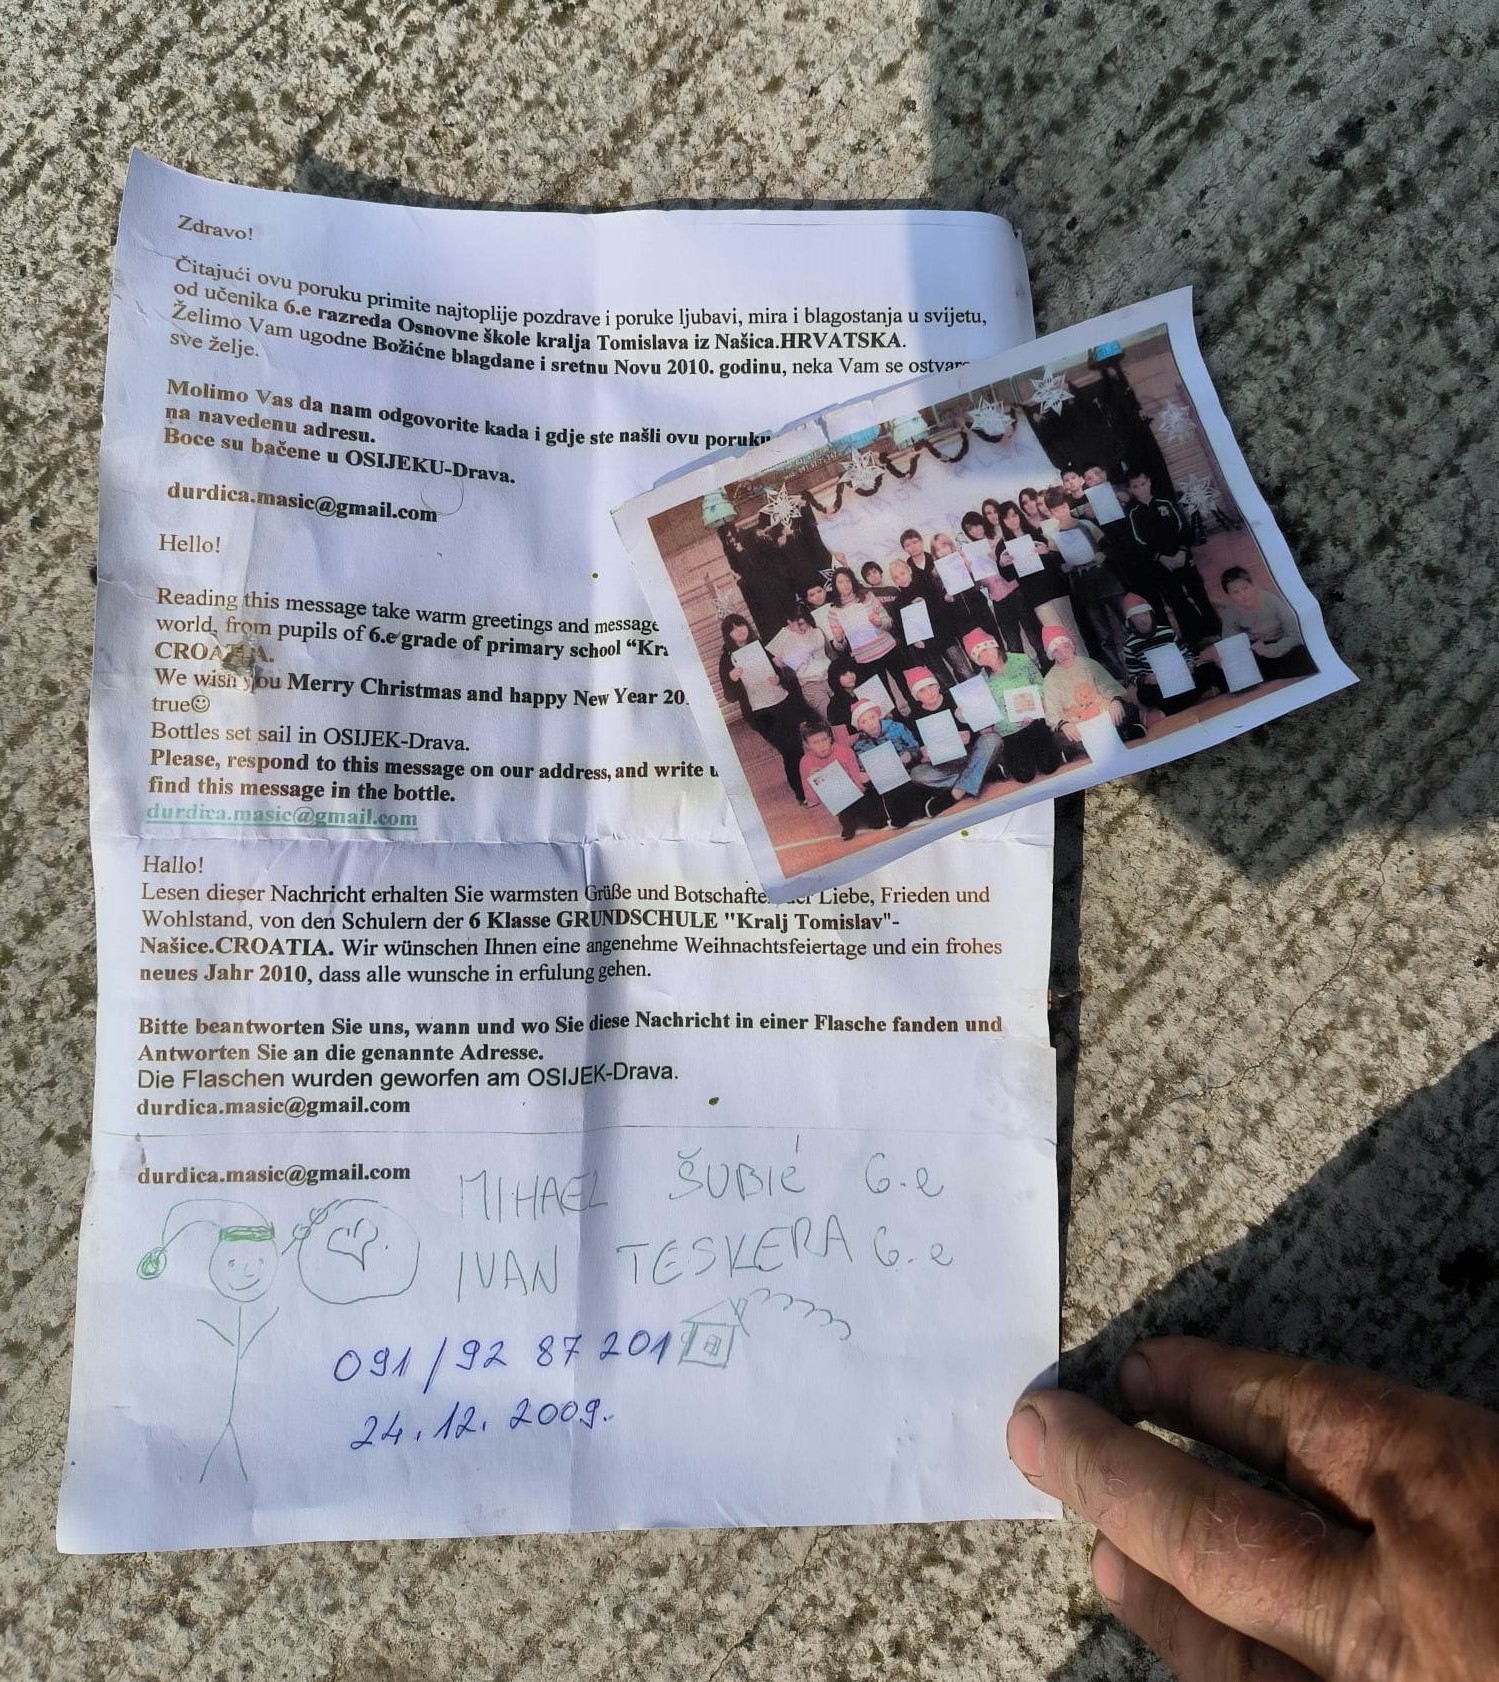 Zdravo!
Čitajući ovu poruku primite najtoplije pozdrave i poruke ljubavi, mira i blagostanja u svijetu,
od učenika 6.e razreda Osnovne škole kralja Tomislava iz Našica.HRVATSKA.
Želimo Vam ugodne Božićne blagdane i sretnu Novu 2010. godinu, neka Vam se
sve želje.
Molimo Vas da nam odgovorite kada i gdje ste našli ovu poruku
na navedenu adresu.
Boce su bačene u OSIJEKU-Drava.
durdica.masic@gmail.com
Hello!
Reading this message take warm greetings and message
world, from pupils of 6.e grade of primary school “Kra
CROATIA.
We wish you Merry Christmas and happy New Year 20
true☺
Bottles set sail in OSIJEK-Drava.
Please, respond to this message on our address, and write
find this message in the bottle.
durdica.masic@gmail.com
Hallo!
Lesen dieser Nachricht erhalten Sie warmsten Grüße und Botschafte der Liebe, Frieden und
Wohlstand, von den Schulern der 6 Klasse GRUNDSCHULE "Kralj Tomislav"-
Našice.CROATIA. Wir wünschen Ihnen eine angenehme Weihnachtsfeiertage und ein frohes
neues Jahr 2010, dass alle wunsche in erfulung gehen.
Bitte beantworten Sie uns, wann und wo Sie diese Nachricht in einer Flasche fanden und
Antworten Sie an die genannte Adresse.
Die Flaschen wurden geworfen am OSIJEK-Drava.
durdica.masic@gmail.com
durdica.masic@gmail.com
MIHAEL ŠUBIĆ 6.e
IVAN TESKERA 6.e
091/92 87 201
24.12.2009.